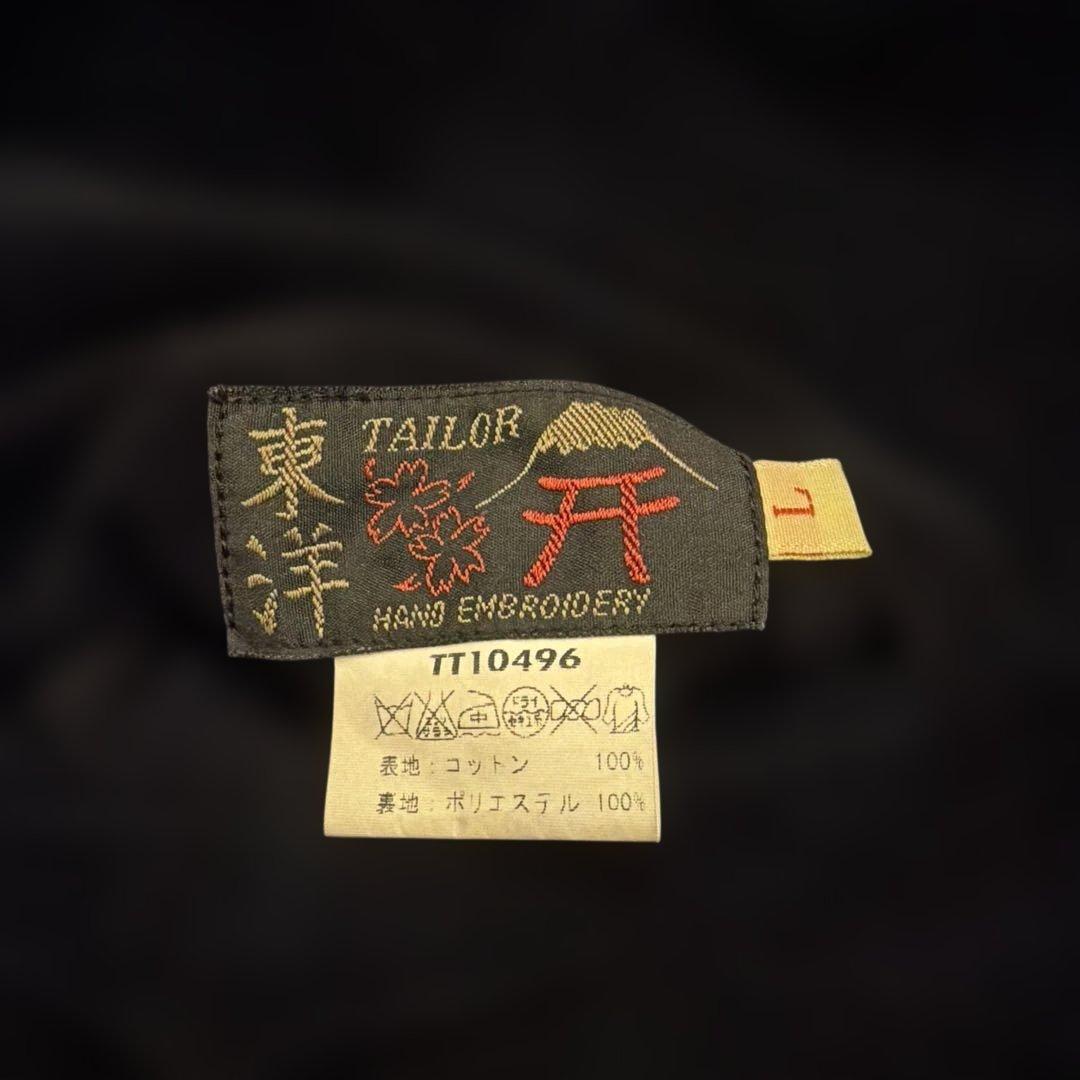 東洋
TAILOR
HAND EMBROIDERY
L
TT10496
中
ドライ
セキユ系
表地：コットン 100%
裏地：ポリエステル 100%